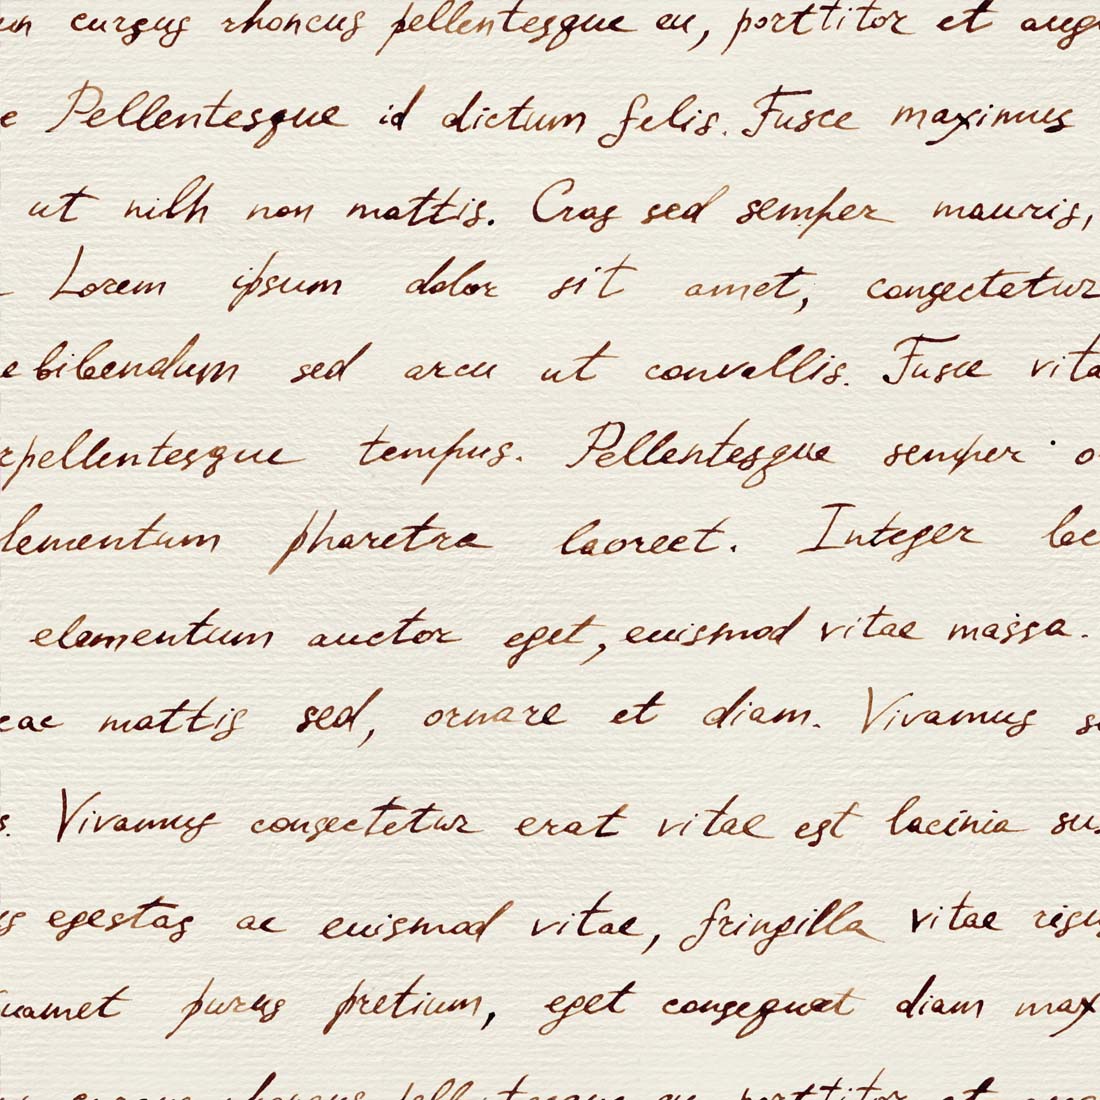 cursus rhoncus pellentesque eu, porttitor et aug
e Pellentesque id dictum felis. Fusce maximus
ut nilh non mattis. Cras sed semper mauris,
Lorem ipsum dolor sit amet, consectetur
e bibendum sed arcu ut convallis. Fusce vita
pellentesque tempus. Pellentesque semper o
lementum pharetra laoreet. Integer lac
elementum auctor eget, euismod vitae massa.
ac mattis sed, ornare et diam. Vivamus s
s. Vivamus consectetur erat vitae est lacinia sus
us egestas ac euismod vitae, fringilla vitae risus
amet purus pretium, eget consequat diam max
cursus rhoncus pellentesque eu porttitor et